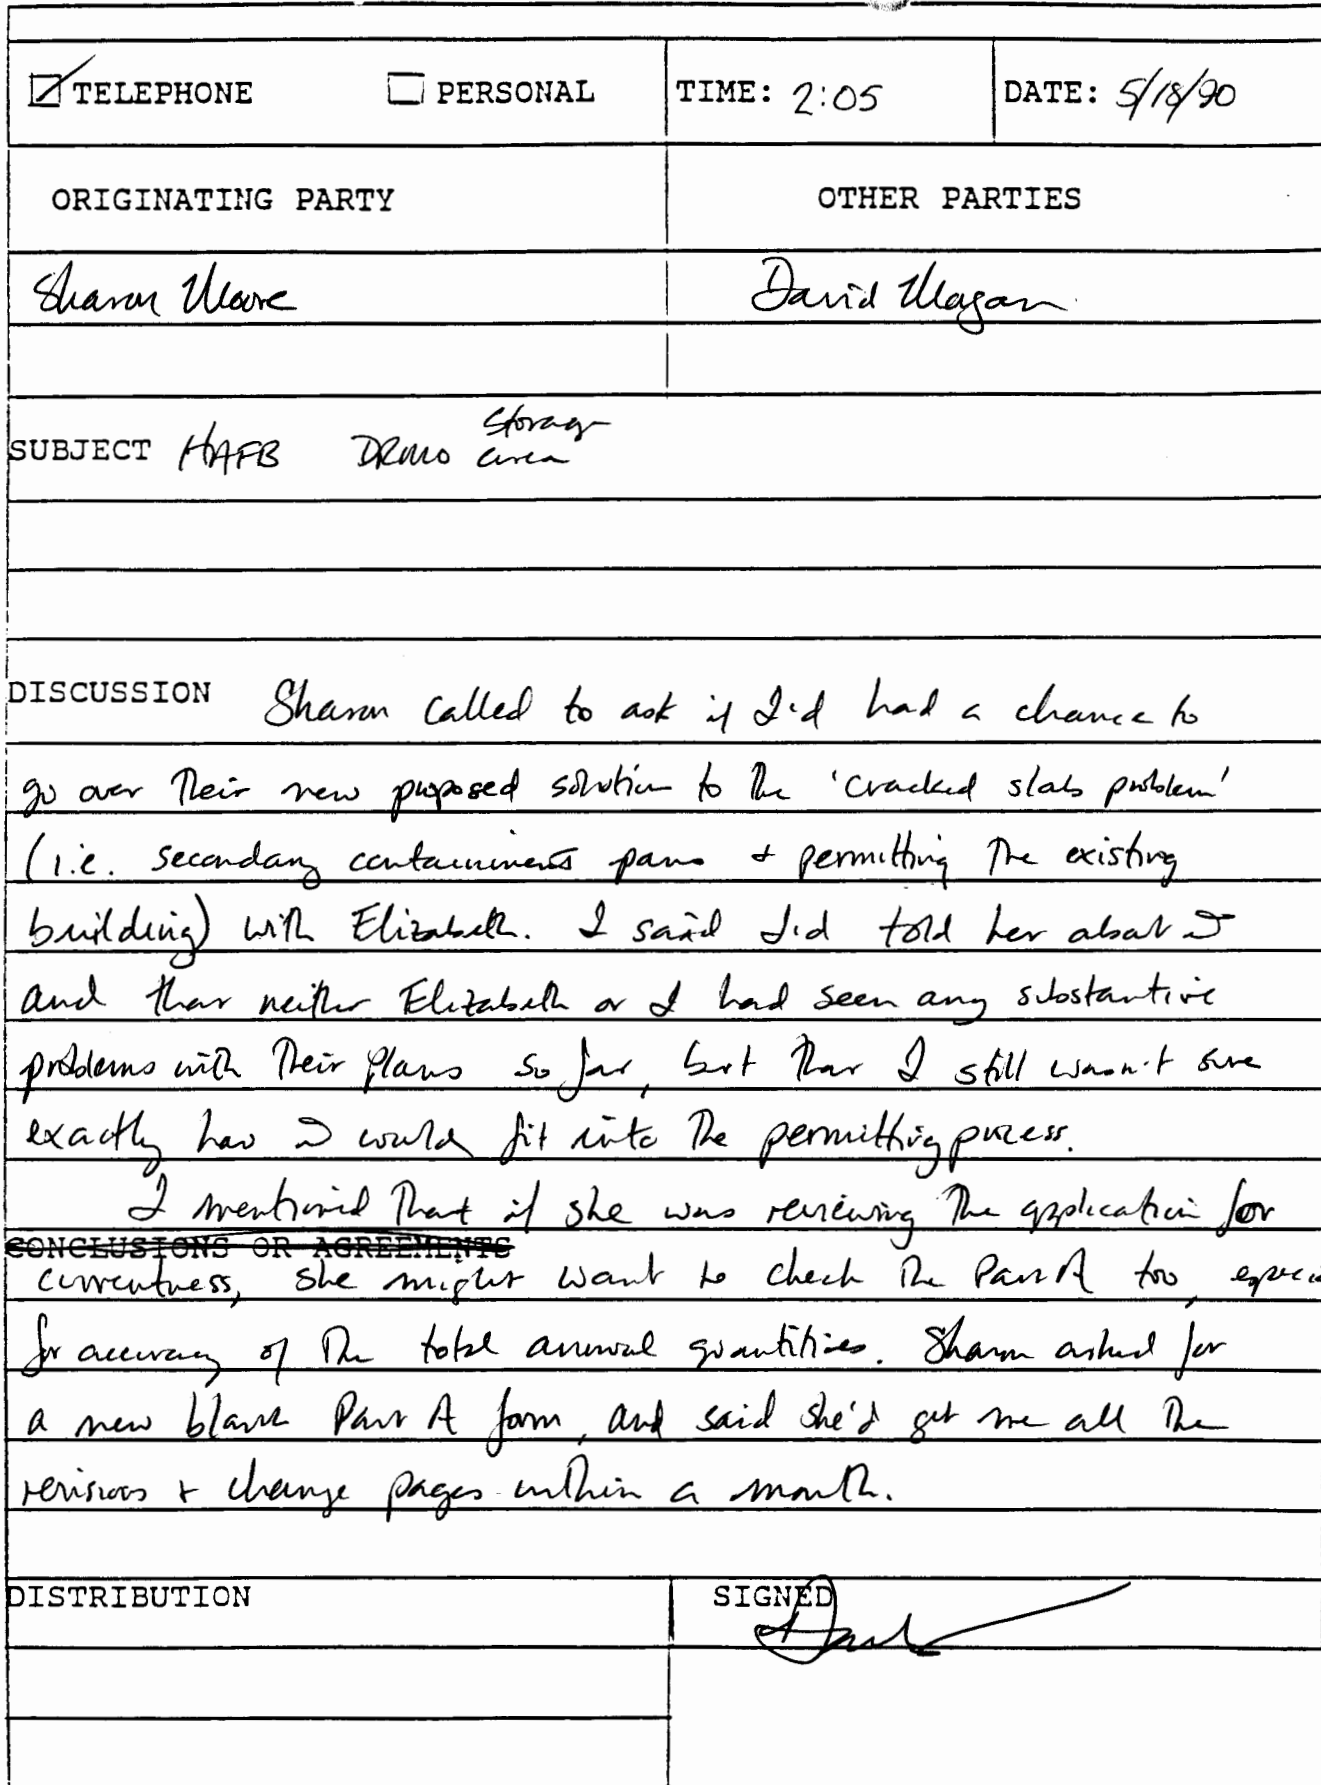 ☑ TELEPHONE ☐ PERSONAL TIME: 2:05 DATE: 5/18/90
ORIGINATING PARTY OTHER PARTIES
Sharon Moore David Magan
SUBJECT HAFB DRMO storage area
DISCUSSION Sharon called to ask if I'd had a chance to
go over their new proposed solution to the 'cracked slab problem'
(i.e. secondary containment pans + permitting the existing
building) with Elizabeth. I said I'd told her about it
and that neither Elizabeth or I had seen any substantive
problems with their plans so far, but that I still wasn't sure
exactly how it would fit into the permitting process.
I mentioned that if she was reviewing the application for
CONCLUSIONS OR AGREEMENTS
currentness, she might want to check the Part A too, especi
for accuracy of the total annual quantities. Sharon asked for
a new blank Part A form, and said she'd get me all the
revisions + change pages within a month.
DISTRIBUTION SIGNED